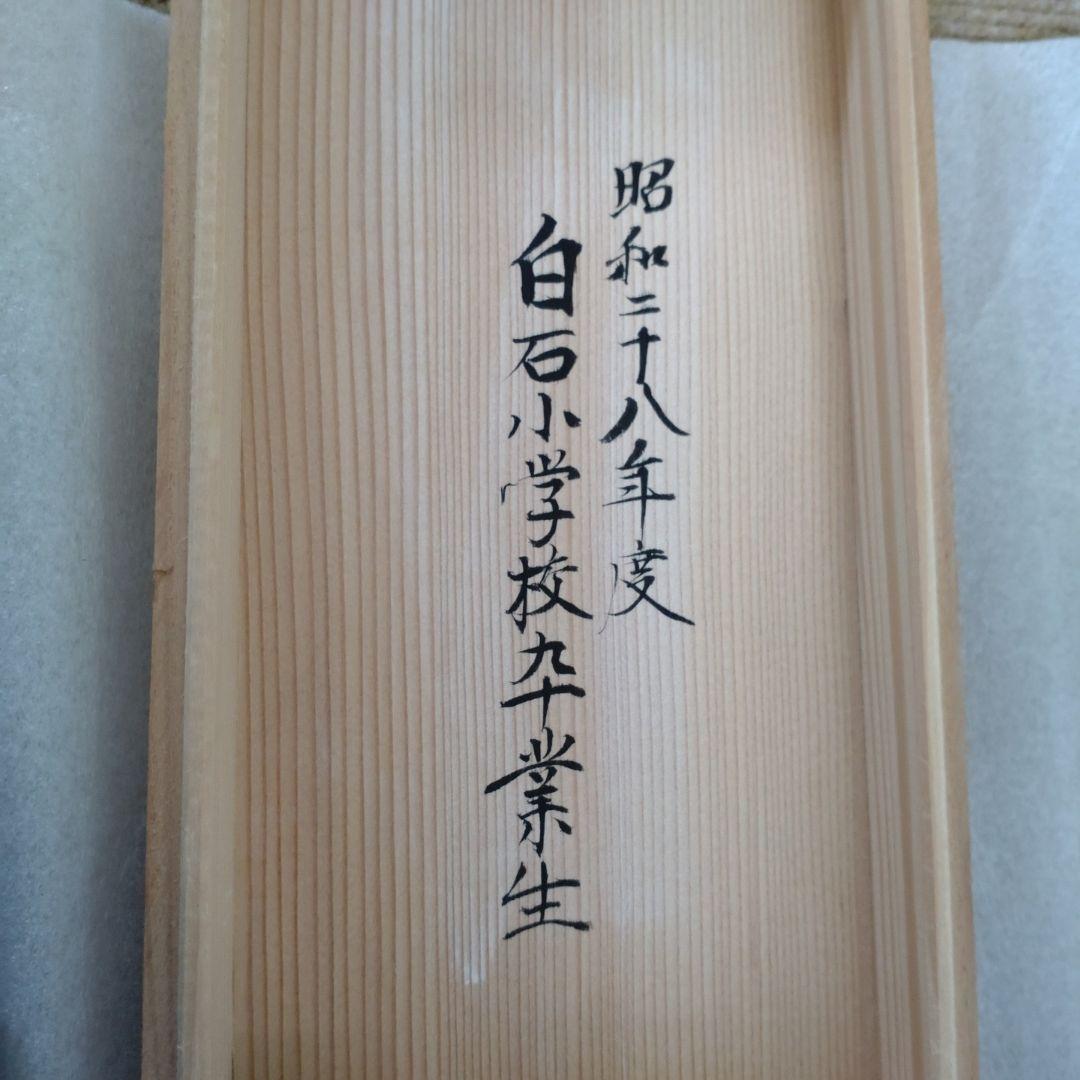 昭和二十八年度
白石小学校卆業生